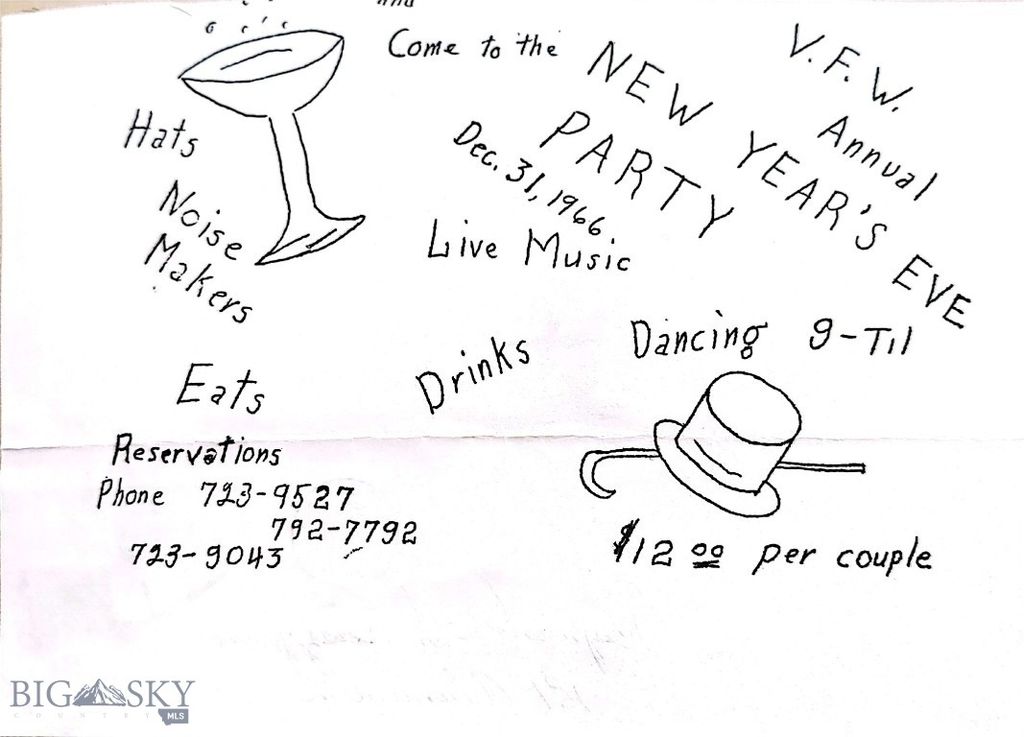 and
Come to the
V.F.W.
Annual
NEW YEAR'S EVE
PARTY
Dec. 31, 1966
Live Music
Hats
Noise
Makers
Dancing 9-Til
Drinks
Eats
Reservations
Phone 723-9527
792-7792
723-9043
$12 00 per couple
BIG SKY
COUNTRY
MLS